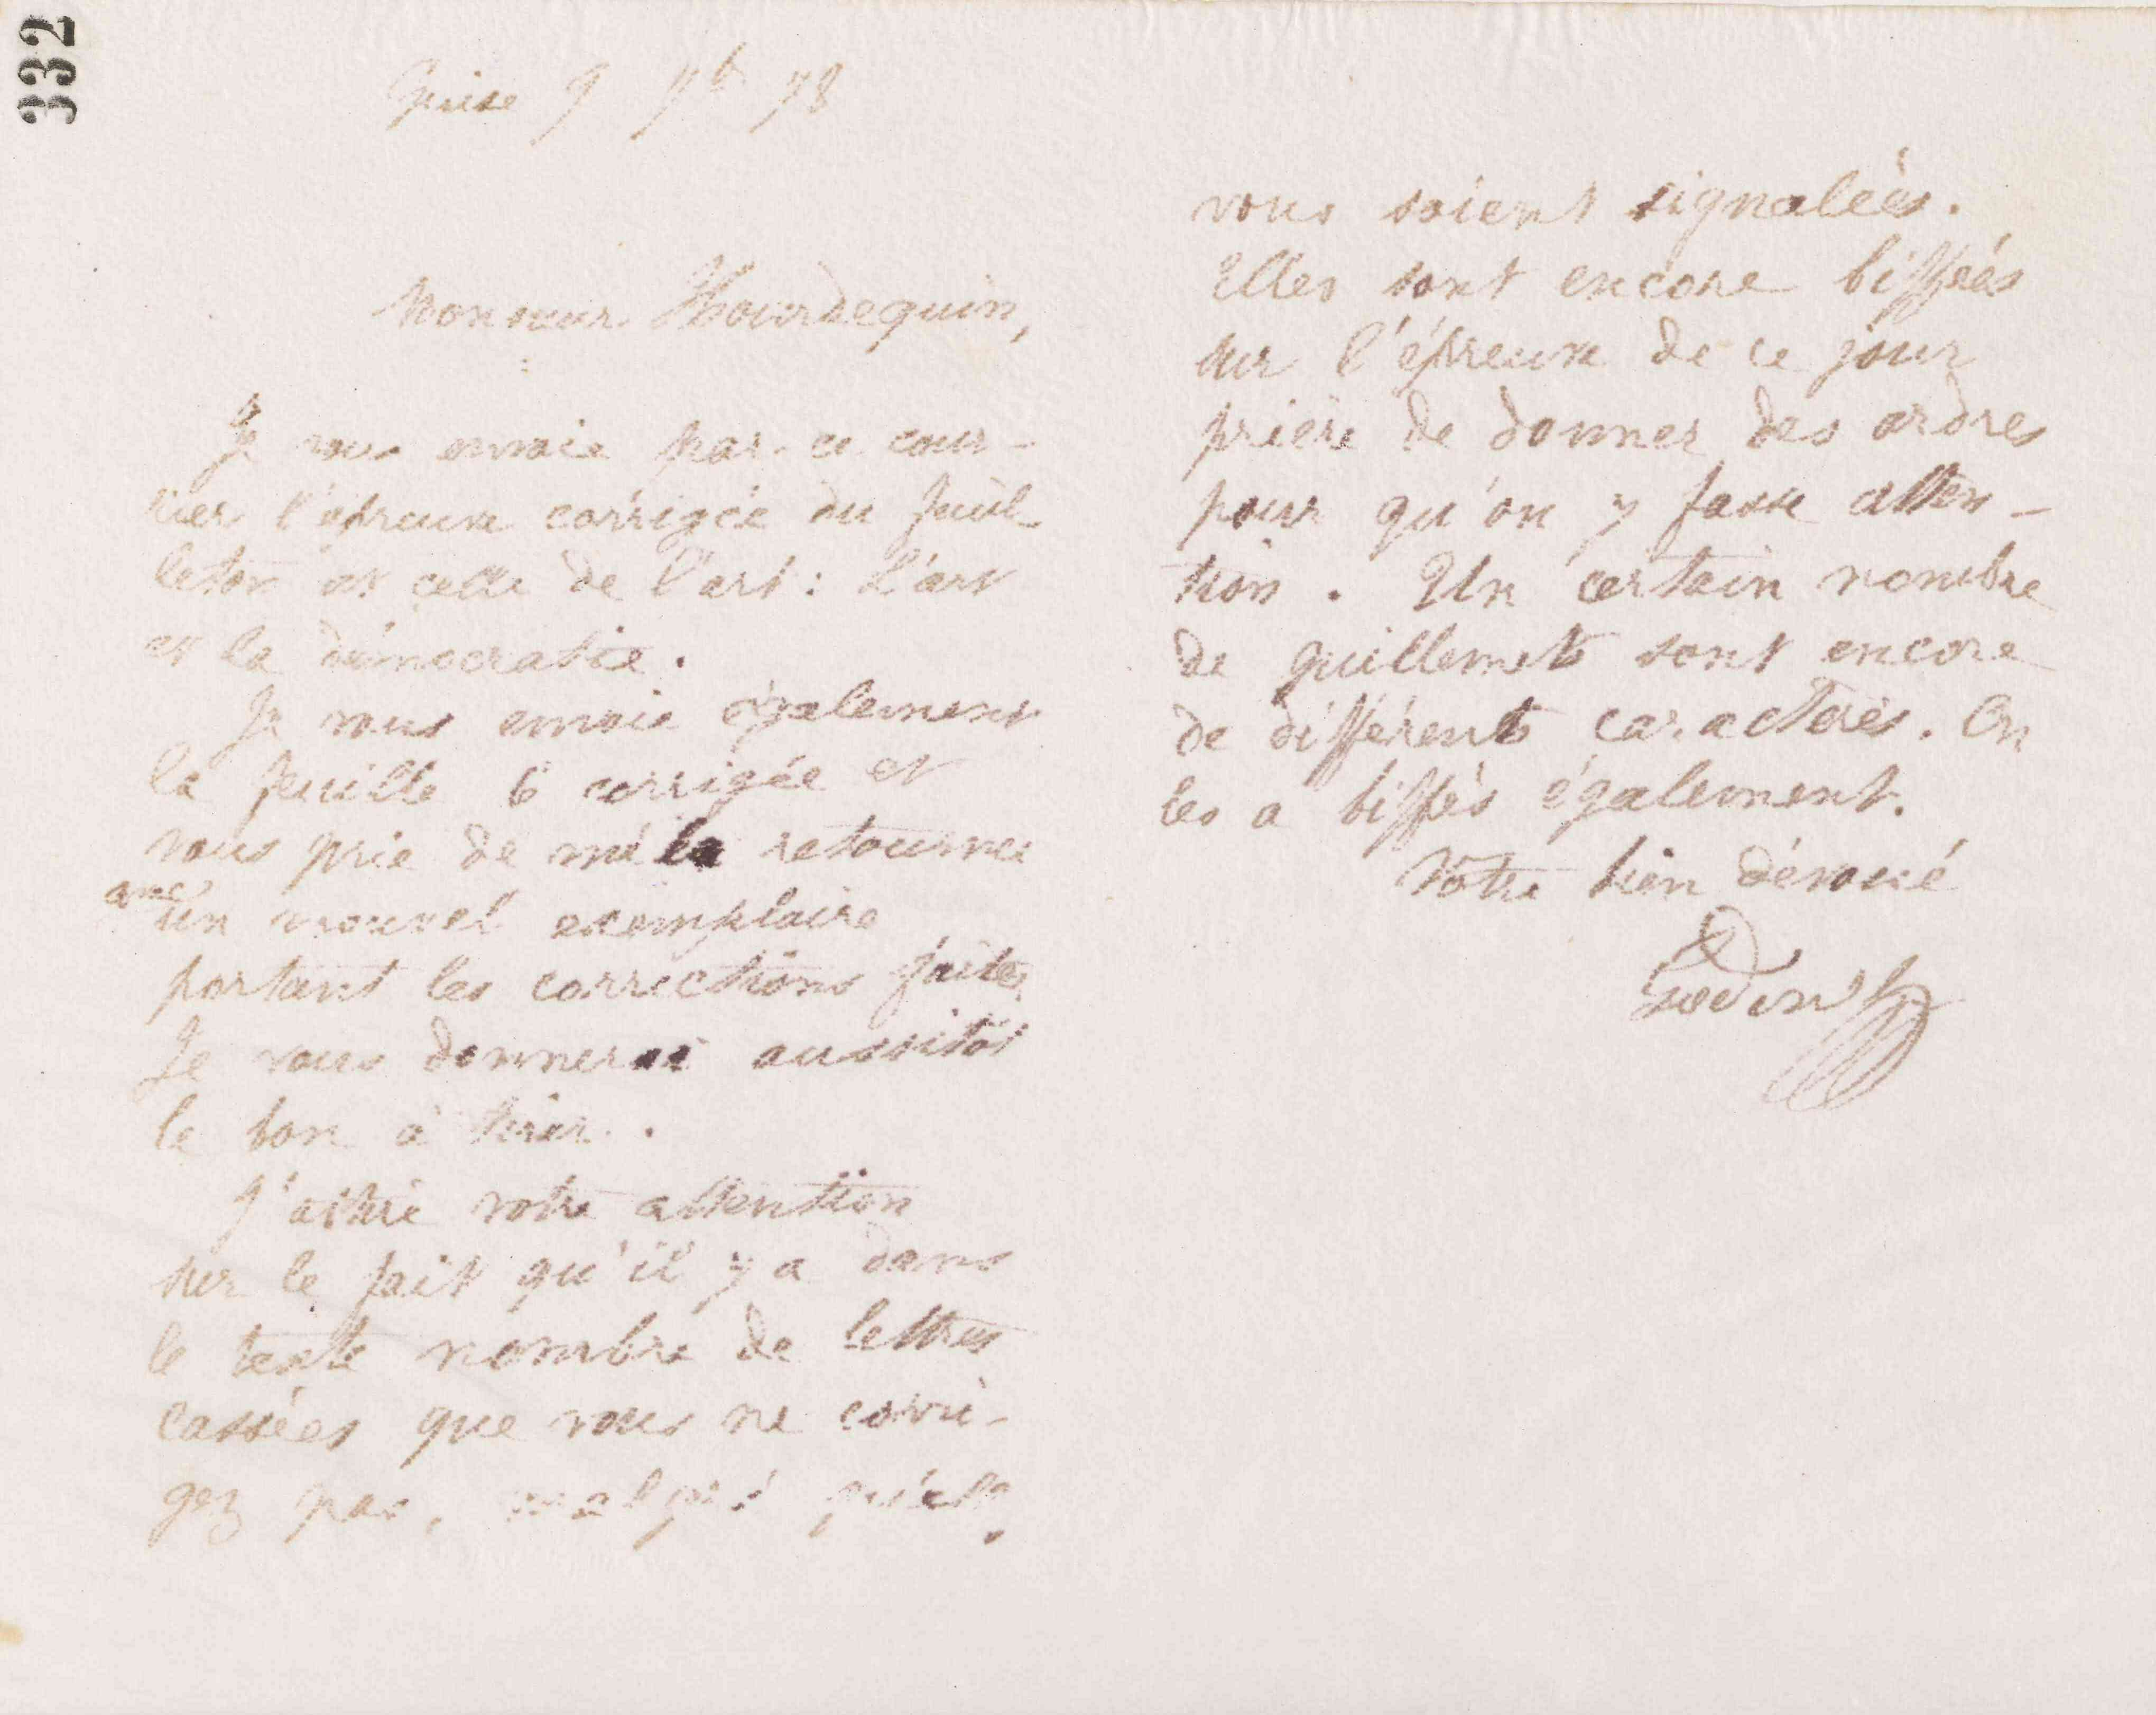 332
Guise 9 9b 78
Monsieur Hourdequin,
Je vous envoie par ce cour-
rier l'épreuve corrigée du feuil-
leton et celle de l'art : L'art
et la démocratie.
Je vous envoie également
la feuille 6 corrigée et
vous prie de me la retourner
avec
un nouvel exemplaire
portant les corrections faites
Je vous donnerai aussitôt
le bon à tirer.
J'attire votre attention
sur le fait qu'il y a dans
le texte nombre de lettres
cassées que vous ne corri-
gez pas, malgré qu'elles
vous soient signalées.
Elles sont encore biffées
sur l'épreuve de ce jour
prière de donner des ordres
pour qu'on y fasse atten-
tion. Un certain nombre
de guillemets sont encore
de différents caractères. On
les a biffés également.
Votre bien dévoué
Godin